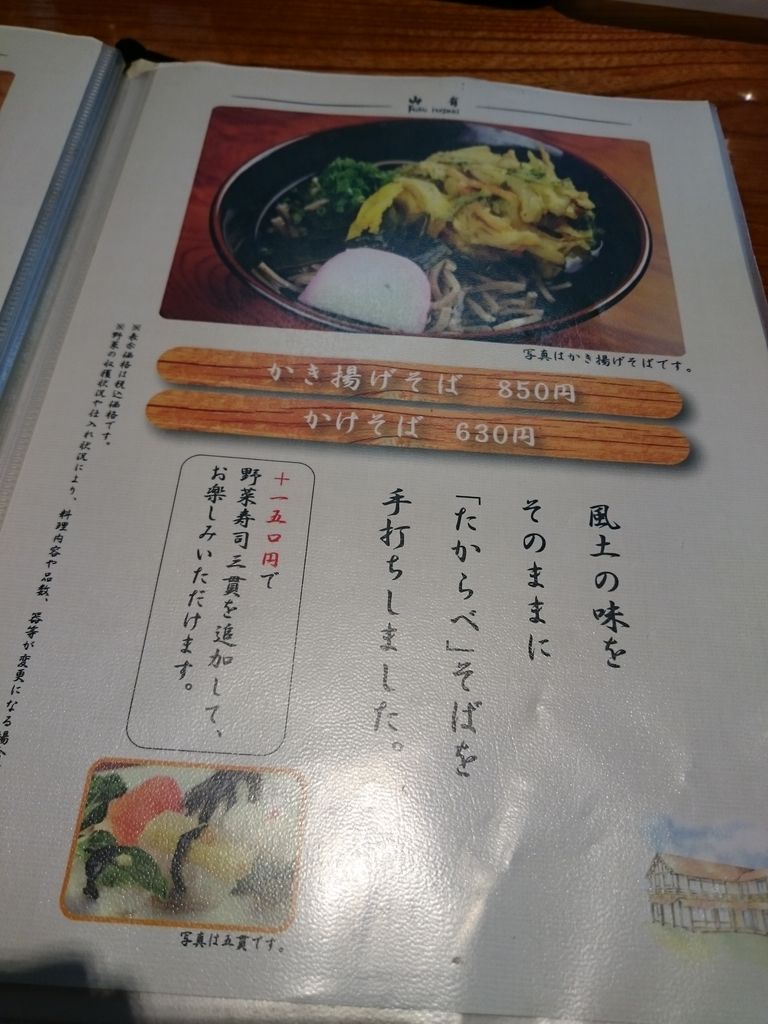 写真はかき揚げそばです。
かき揚げそば 850円
かけそば 630円
風土の味を
そのままに
「たからべ」そばを
手打ちしました。
十一五〇円で
野菜寿司三貫を追加して、
お楽しみいただけます。
写真は五貫です。
※表示価格は税込価格です。
※野菜の収穫状況や仕入れ状況により、料理内容や品数、器等が変更になる場合